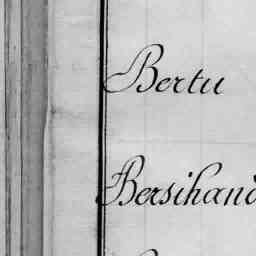 Bertu
Bersihand